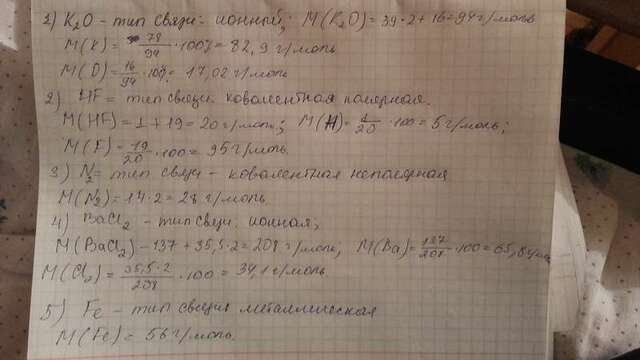 1) K₂O - тип связи: ионный; M(K₂O)=39·2+16=94 г/моль
M(K) = 78/94 ·100% = 82,9 г/моль
M(O)= 16/94 ·100% = 17,02 г/моль
2) HF = тип связи: ковалентная полярная.
M(HF)=1+19=20 г/моль; M(H)= 1/20 ·100=5 г/моль;
M(F)= 19/20 ·100=95 г/моль
3) N₂= тип связи - ковалентная неполярная
M(N₂)=14·2=28 г/моль
4) BaCl₂ - тип связи: ионная;
M(BaCl₂)-137+35,5·2=208 г/моль; M(Ba)= 137/208 ·100=65,8 г/моль
M(Cl₂)= 35,5·2/208 ·100=34,1 г/моль
5) Fe - тип связи: металлическая
M(Fe)=56 г/моль.